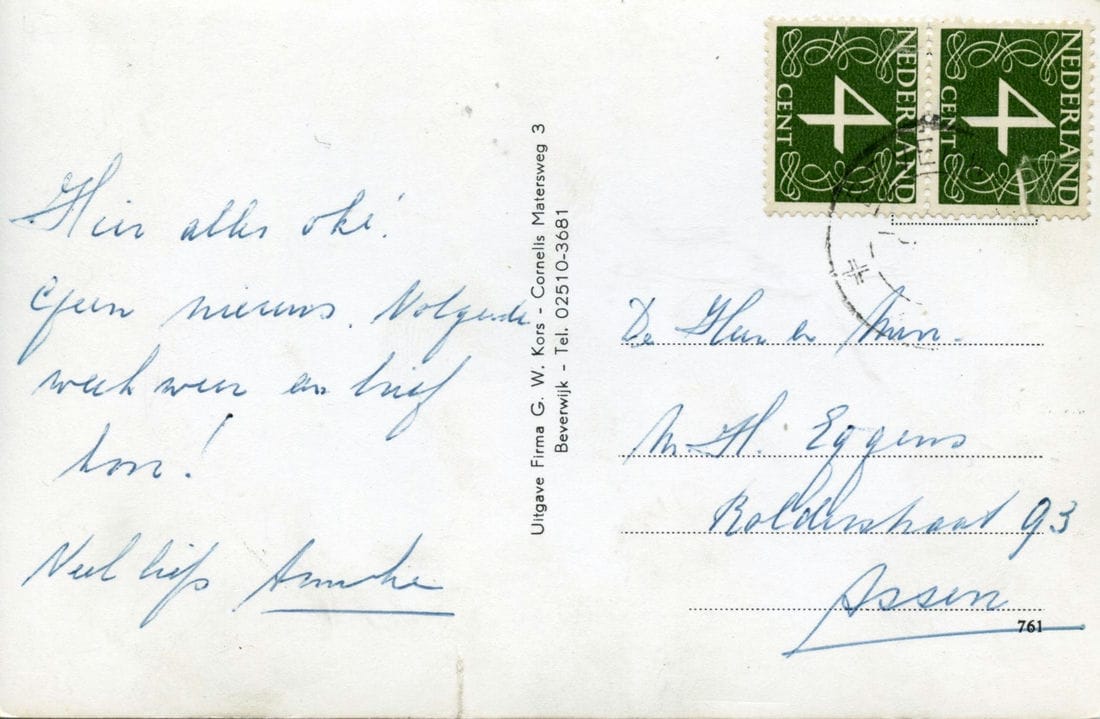 Hier alles oké!
Geen nieuws. Volgende
week weer een brief
hoor!
Veel liefs Anneke
Uitgave Firma G. W. Kors - Cornelis Matersweg 3
Beverwijk - Tel. 02510-3681
NEDERLAND
4
CENT
NEDERLAND
4
CENT
De Heer en Mevr.
H. Eggens
Rolderstraat 93
Assen
761